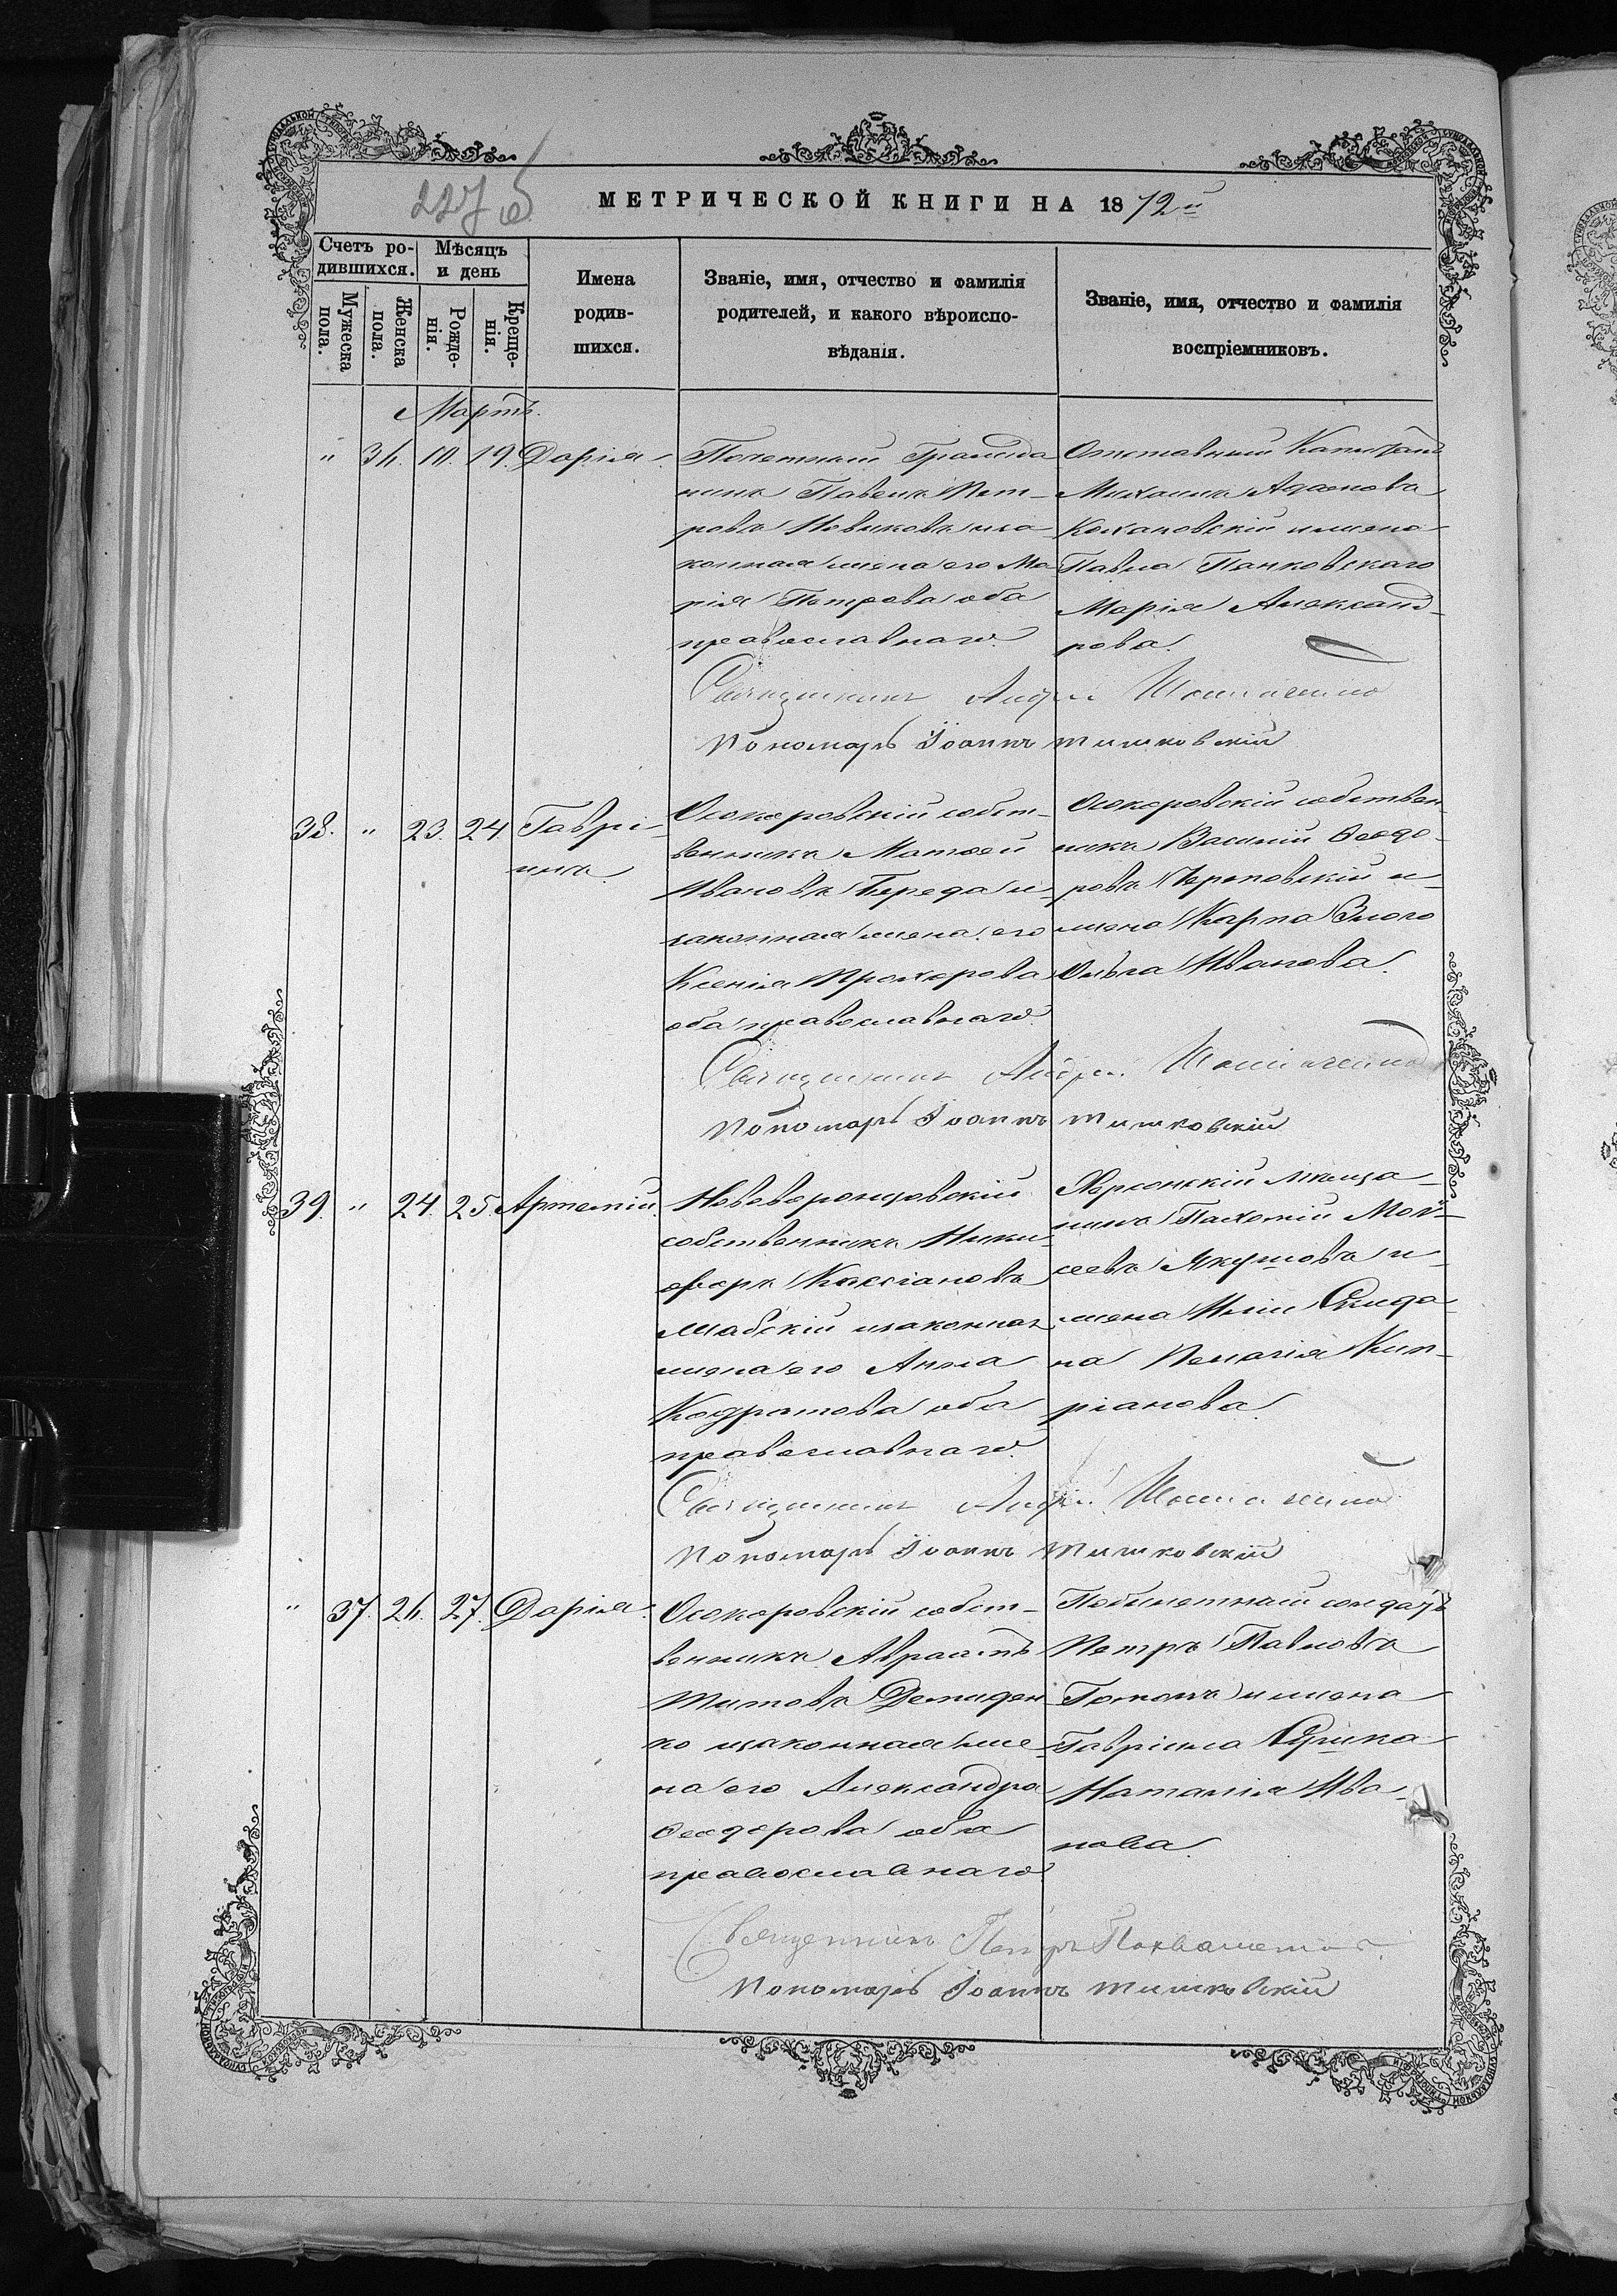 227 об
МЕТРИЧЕСКОЙ КНИГИ НА 1872й
Счетъ ро-
дившихся.
Мѣсяцъ
и день
Мужеска
пола.
Женска
пола.
Рожде-
нія.
Креще-
нія.
Имена
родив-
шихся.
Званіе, имя, отчество и фамилія
родителей, и какого вѣроиспо-
вѣданія.
Званіе, имя, отчество и фамилія
воспріемниковъ.
Мартъ.
" 36. 10. 19. Дарія.
Почетный Гражда
нинъ Павелъ Пет-
ровъ Новиковъ и за-
конная жена его Ма
рія Петрова оба
православнаго.
Отставный Капитанъ
Михаилъ
Кохановскій и жена
Павла Панковскаго
Марія Александ-
рова.
Священникъ Андрей
Пономарь Іоаннъ Тишковскій
38. " 23. 24. Гаврі-
илъ.
Осокоровскій собст-
венникъ Матѳей
Ивановъ Береда и
законная жена его
Ксенія Прохорова
оба православнаго.
Осокоровскій собствен
никъ Василій Ѳеодо-
ровъ и
жена Карпа Злого
Ольга Иванова.
Священникъ Андрей
Пономарь Іоаннъ Тишковскій
39. " 24. 25. Артемій.
Нововоронцовскій
собственникъ Ники-
форъ Кассіановъ
Шабскій и законная
жена его Анна
Кодратова оба
православнаго.
Херсонскій мѣща-
нинъ Пахомій Мой-
сеевъ Якушовъ и
жена Иліи Скида-
на Пелагія Кип-
ріанова.
Священникъ Андрей
Пономарь Іоаннъ Тишковскій
" 37. 26. 27. Дарія.
Осокоровскій собст-
венникъ Авраамъ
Титовъ Демиден
ко и законная же-
на его Александра
Ѳеодорова оба
православнаго
солдатъ
Петръ Павловъ
и жена
Гавріила
Наталія Ива-
нова.
Священникъ Петръ
Пономарь Іоаннъ Тишковскій